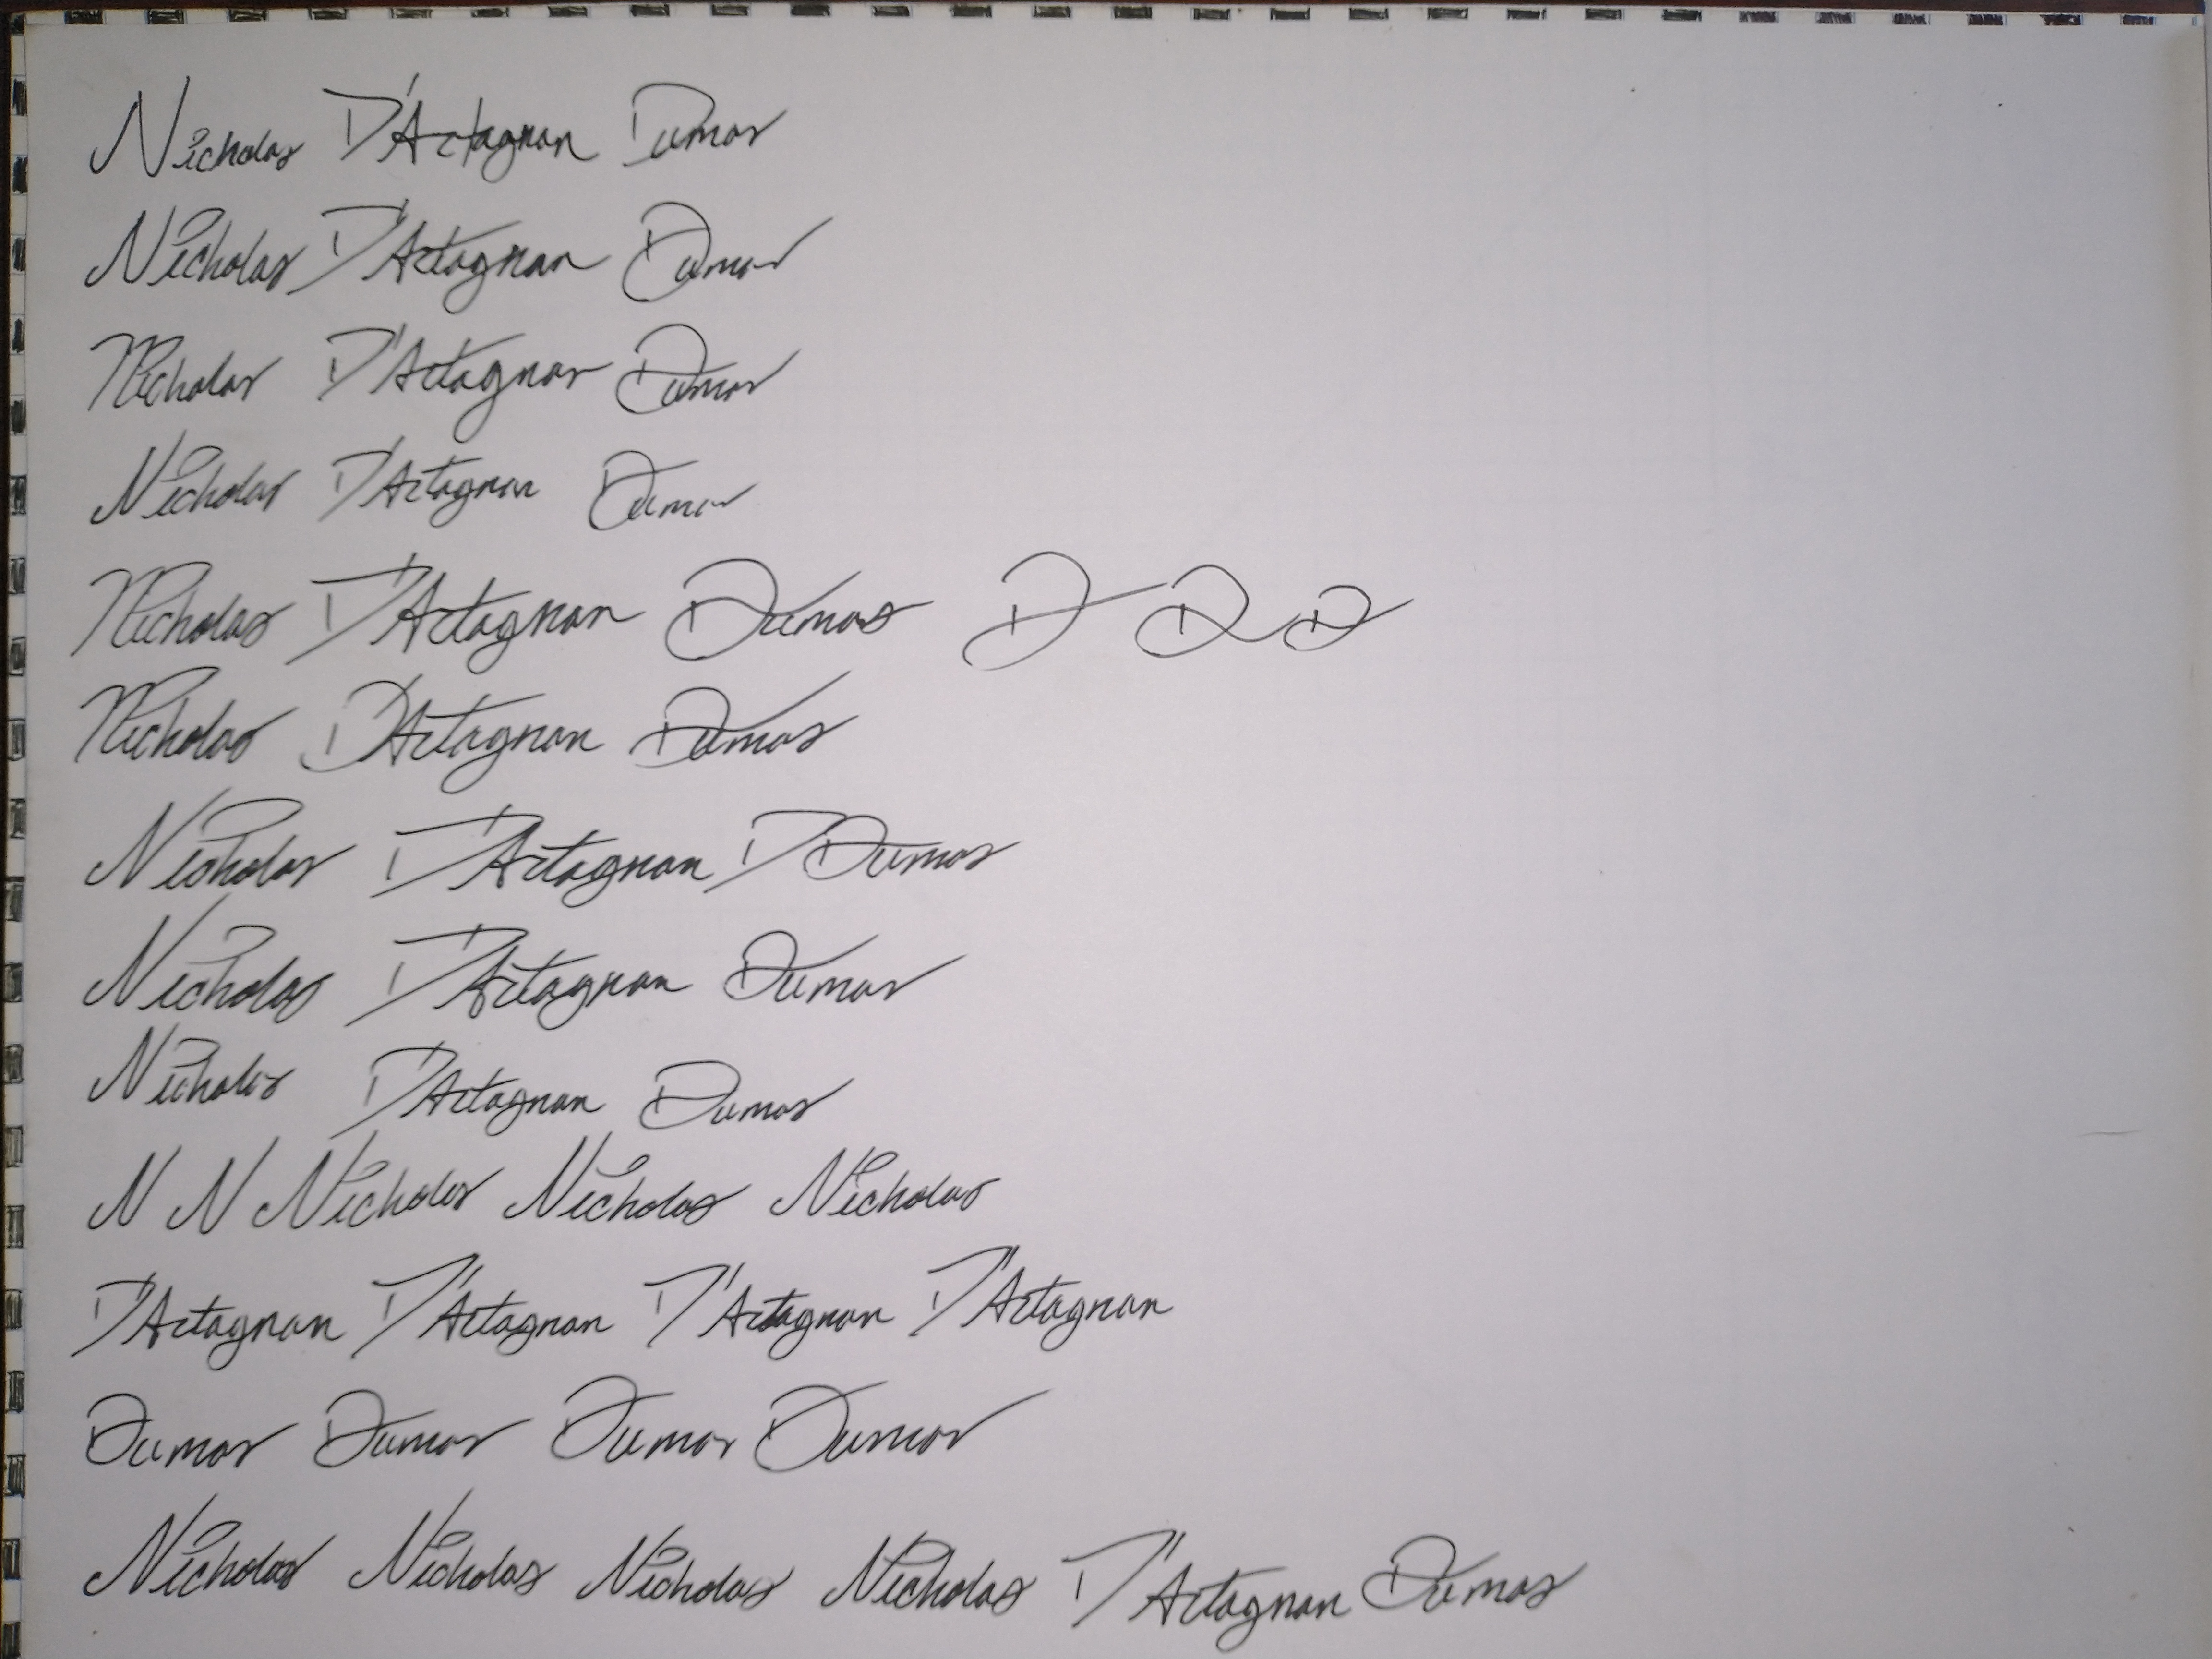 Nicholas D'Artagnan Dumas
Nicholas D'Artagnan Dumas
Nicholas D'Artagnan Dumas
Nicholas D'Artagnan Dumas
Nicholas D'Artagnan Dumas D D D
Nicholas D'Artagnan Dumas
Nicholas D'Artagnan Dumas
Nicholas D'Artagnan Dumas
Nicholas D'Artagnan Dumas
N N Nicholas Nicholas Nicholas
D'Artagnan D'Artagnan D'Artagnan D'Artagnan
Dumas Dumas Dumas Dumas
Nicholas Nicholas Nicholas Nicholas D'Artagnan Dumas